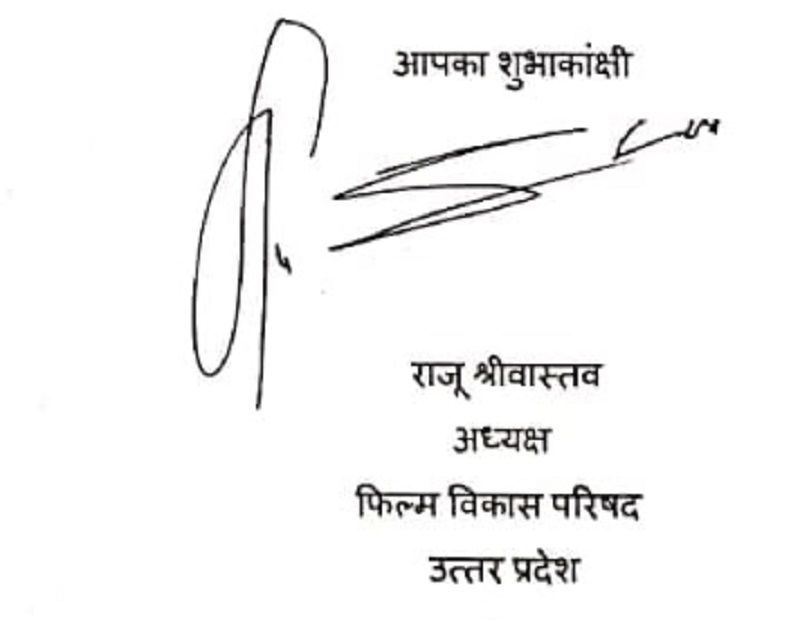 आपका शुभाकांक्षी
राजू श्रीवास्तव
अध्यक्ष
फिल्म विकास परिषद
उत्तर प्रदेश